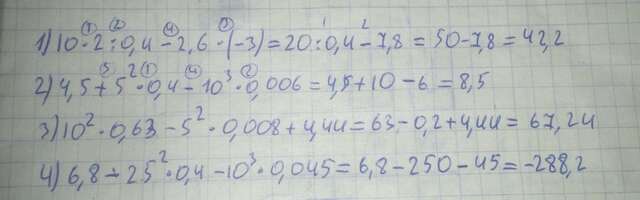 1) 10 · 2 : 0,4 - 2,6 · (-3) = 20 : 0,4 - 7,8 = 50 - 7,8 = 42,2
2) 4,5 + 5² · 0,4 - 10³ · 0,006 = 4,5 + 10 - 6 = 8,5
3) 10² · 0,63 - 5² · 0,008 + 4,44 = 63 - 0,2 + 4,44 = 67,24
4) 6,8 - 25² · 0,4 - 10³ · 0,045 = 6,8 - 250 - 45 = -288,2